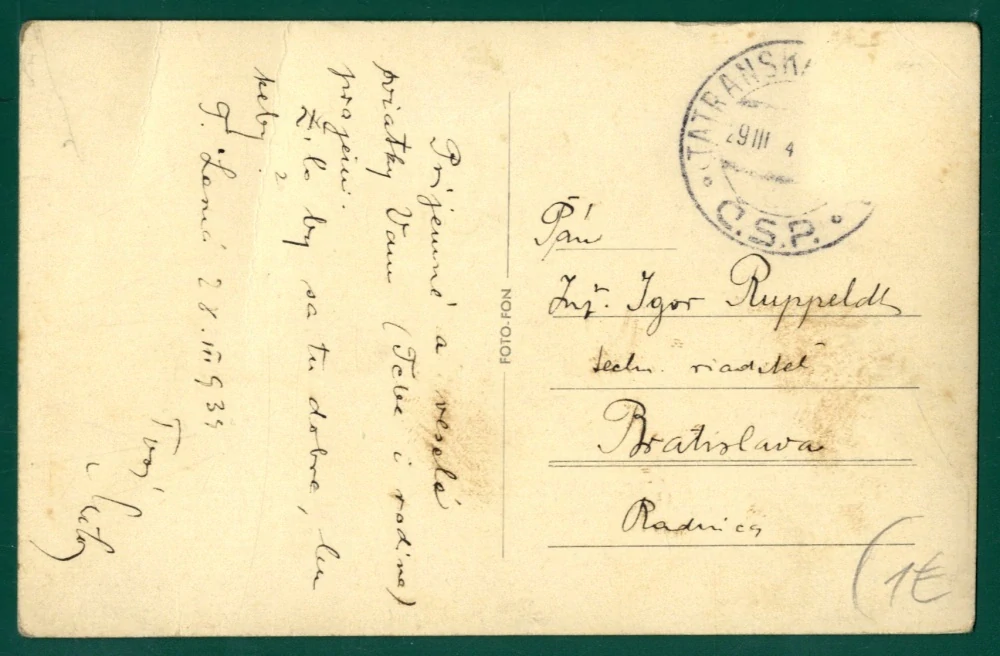 Príjemné a veselé
sviatky Vám (Tebe i rodine)
prajem.
Žilo by sa tu dobre, len
keby
T. Lomn 28.III 939
Tvoj
TATRANSKÁ
29 III 4
C.S.P.
FOTO-FON
Pán
Inž. Igor Ruppeldt
techn. riaditeľ
Bratislava
Radnica
1€